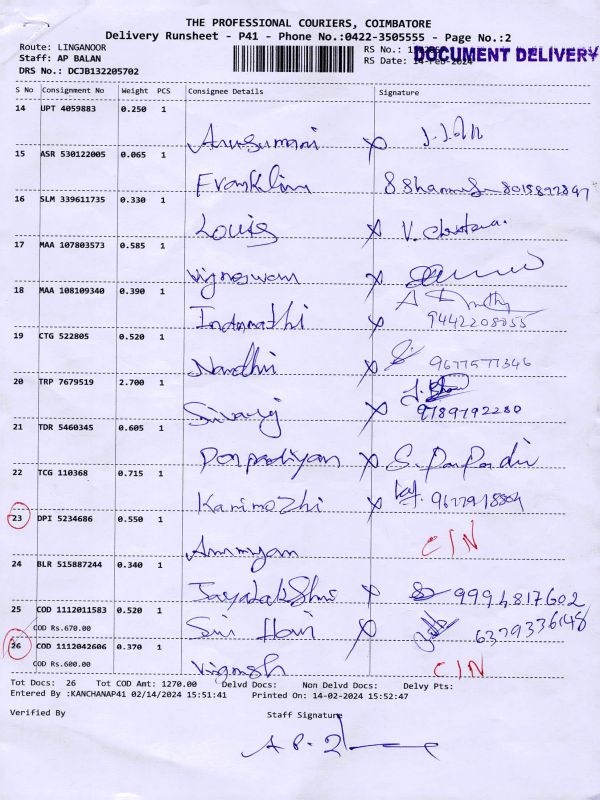 THE PROFESSIONAL COURIERS, COIMBATORE
Delivery Runsheet - P41 - Phone No.:0422-3505555 - Page No.:2
Route: LINGANOOR
Staff: AP BALAN
DRS No.: DCJB132205702
RS No.:
RS Date: 14-Feb-2024
DOCUMENT DELIVERY
S No Consignment No Weight PCS Consignee Details Signature
14 UPT 4059883 0.250 1
Arusumani X
15 ASR 530122005 0.065 1
Franklin 8015892847
16 SLM 339611735 0.330 1
Louis X V.
17 MAA 107803573 0.585 1
Vigneswan X
18 MAA 108109340 0.390 1
Indumathi X 9442208055
19 CTG 522805 0.520 1
Nandhi X 9677577346
20 TRP 7679519 2.700 1
Sivaraj X 9789792280
21 TDR 5460345 0.605 1
Ponpandiyan X S.
22 TCG 110368 0.715 1
Kanimozhi X
23 DPI 5234686 0.550 1
C/N
24 BLR 515887244 0.340 1
Jayalakshmi X 9994817602
25 COD 1112011583 0.520 1
COD Rs.670.00
Sri Hari X 6379336148
26 COD 1112042606 0.370 1
COD Rs.600.00
Vignesh C/N
Tot Docs: 26 Tot COD Amt: 1270.00 Delvd Docs: Non Delvd Docs: Delvy Pts:
Entered By :KANCHANAP41 02/14/2024 15:51:41 Printed On: 14-02-2024 15:52:47
Verified By Staff Signature